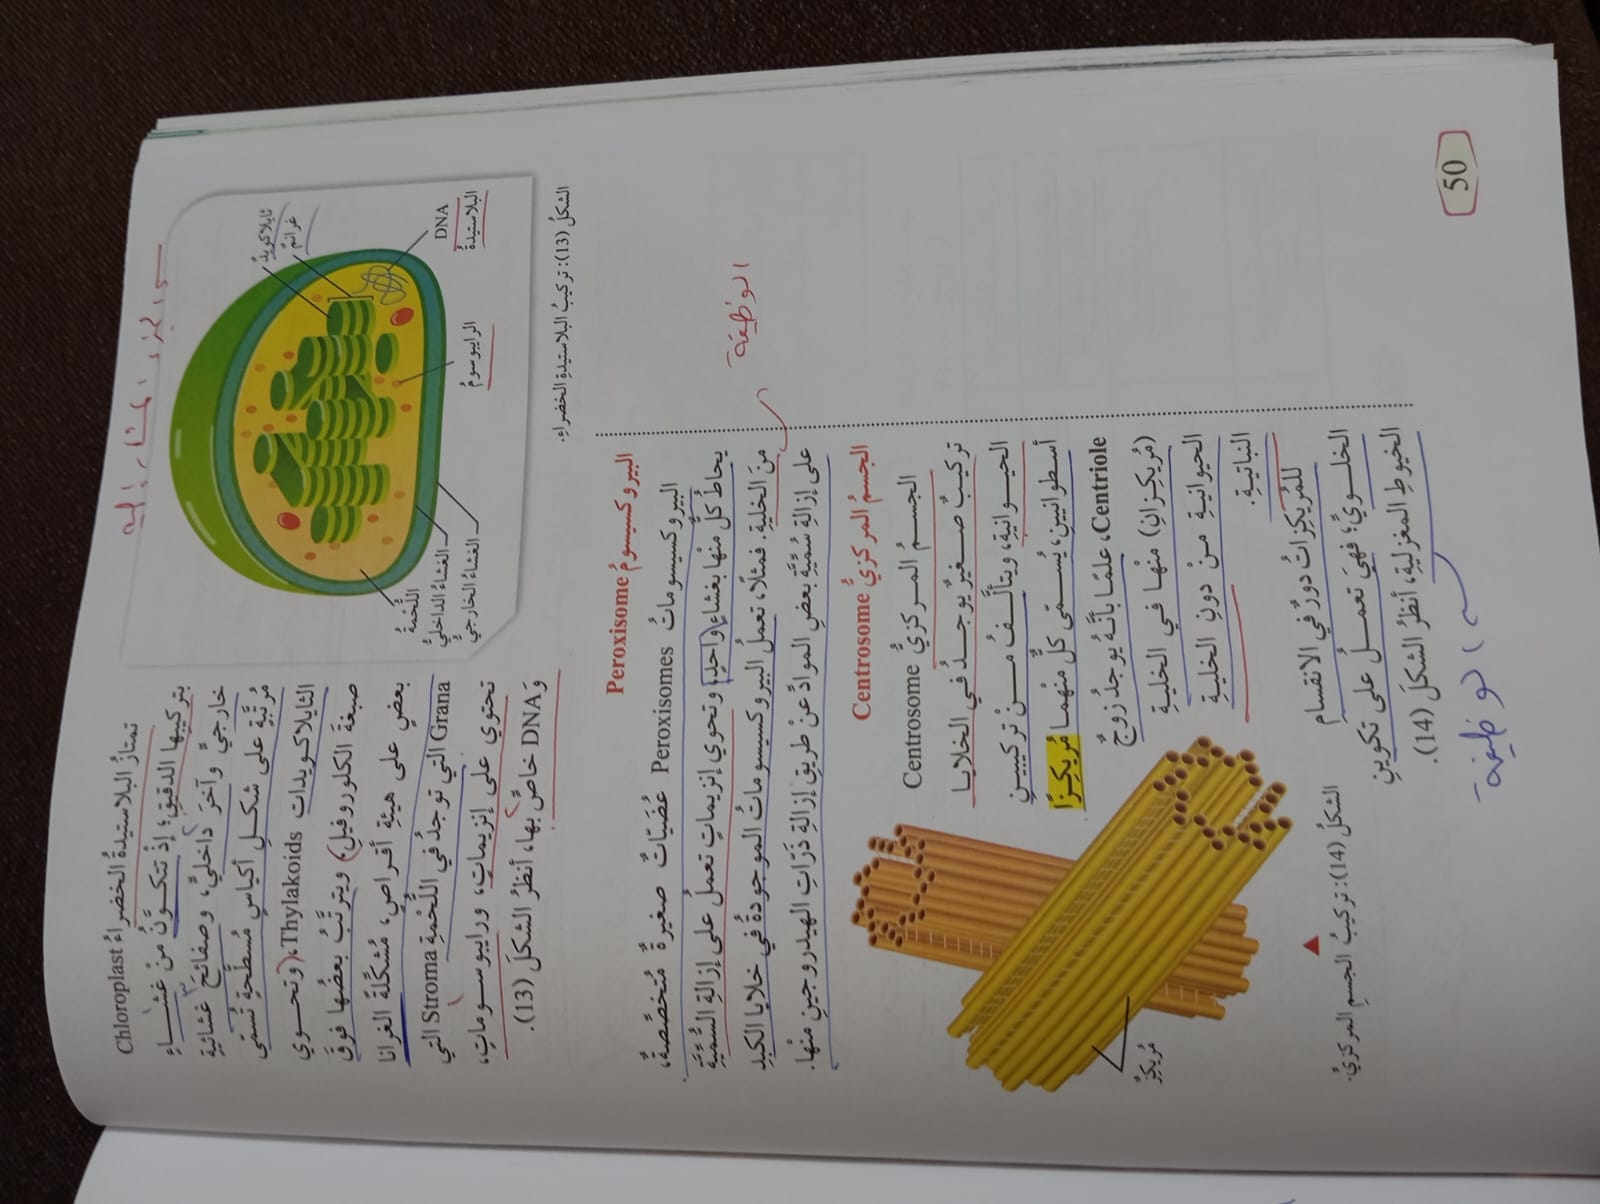 تمتازُ البلاستيدةُ الخضراءُ Chloroplast
بتركيبِها الدقيقِ؛ إذْ تتكوَّنُ منْ غشاءٍ
خارجيٍّ وآخرَ داخليٍّ، وصفائحَ غشائيةٍ
مُرتَّبةٍ على شكلِ أكياسٍ مُسطَّحةٍ تُسمّى
الثايلاكويدات Thylakoids، (وتحوي
صبغةَ الكلوروفيلِ) ويترتَّبُ بعضُها فوقَ
بعضٍ على هيئةِ أقراصٍ، مُشكِّلةً الغرانا
Grana التي توجدُ في اللُّحْمةِ Stroma التي
تحتوي على إنزيماتٍ، ورايبوسوماتٍ،
وَDNA خاصٍّ بها، أنظرُ الشكلَ (13).
ثايلاكويدٌ
غرانمٌ
DNA
البلاستيدةُ
الرايبوسومُ
اللُّحْمةُ
الغشاءُ الداخليُّ
الغشاءُ الخارجيُّ
الشكلُ (13): تركيبُ البلاستيدةِ الخضراءِ.
البيروكسيسومُ Peroxisome
البيروكسيسوماتُ Peroxisomes عُضَيّاتٌ صغيرةٌ مُتخصِّصةٌ،
يحاطُ كلٌّ منْها بغشاءٍ واحدٍ، وتحوي إنزيماتٍ تعملُ على إزالةِ السُّمِّيَّةِ
منَ الخليةِ. فمثلًا، تعملُ البيروكسيسوماتُ الموجودةُ في خلايا الكبدِ
على إزالةِ سُمِّيَّةِ بعضِ الموادِّ عنْ طريقِ إزالةِ ذرّاتِ الهيدروجينِ منْها.
الوظيفة
الجسمُ المركزيُّ Centrosome
الجسمُ المركزيُّ Centrosome
تركيبٌ صغيرٌ يوجدُ في الخلايا
الحيوانيةِ، ويتألَّفُ منْ تركيبينِ
أسطوانيينِ، يُسمّى كلٌّ منْهُما مُريكِزًا
Centriole، علمًا بأنَّهُ يوجدُ زوجٌ
(مُريكِزانِ) منْها في الخليةِ
الحيوانيةِ منْ دونِ الخليةِ
النباتيةِ.
للمُريكِزاتِ دورٌ في الانقسامِ
الخلويِّ؛ فهيَ تعملُ على تكوينِ
الخيوطِ المغزليةِ، أنظرُ الشكلَ (14).
الوظيفة
مُريكِزٌ
الشكلُ (14): تركيبُ الجسمِ المركزيِّ.
50